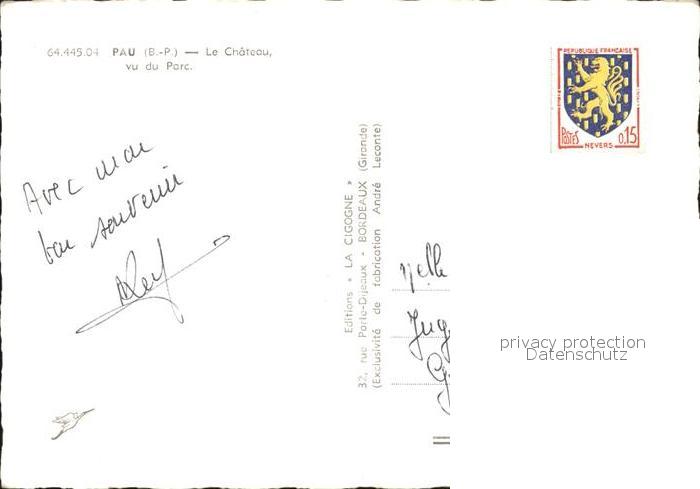 64.445.04 PAU (B.-P.) — Le Château,
vu du Parc.
REPUBLIQUE FRANÇAISE
POSTES 0,15
NEVERS
Avec mon
bon souvenir
Editions « LA CIGOGNE »
32, rue Porte-Dijeaux - BORDEAUX (Gironde)
(Exclusivité de fabrication André Leconte)
privacy protection
Datenschutz